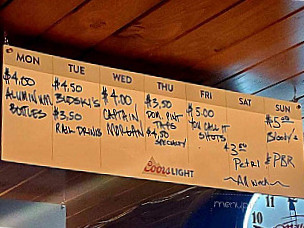 MON TUE WED THU FRI SAT SUN
$4.00
ALUMINUM
BOTTLES
$4.50
BUDSKI'S
$3.50
RAIL DRINKS
$4.00
CAPTAIN
MORGAN
$3.50
DOM. PINT
TAPS
$4.50
SPECIALTY
$5.00
YOU CALL IT
SHOTS
$5.00
Bloody's
$3.50
PBR
All Week
Coors LIGHT
menu
12
11
10